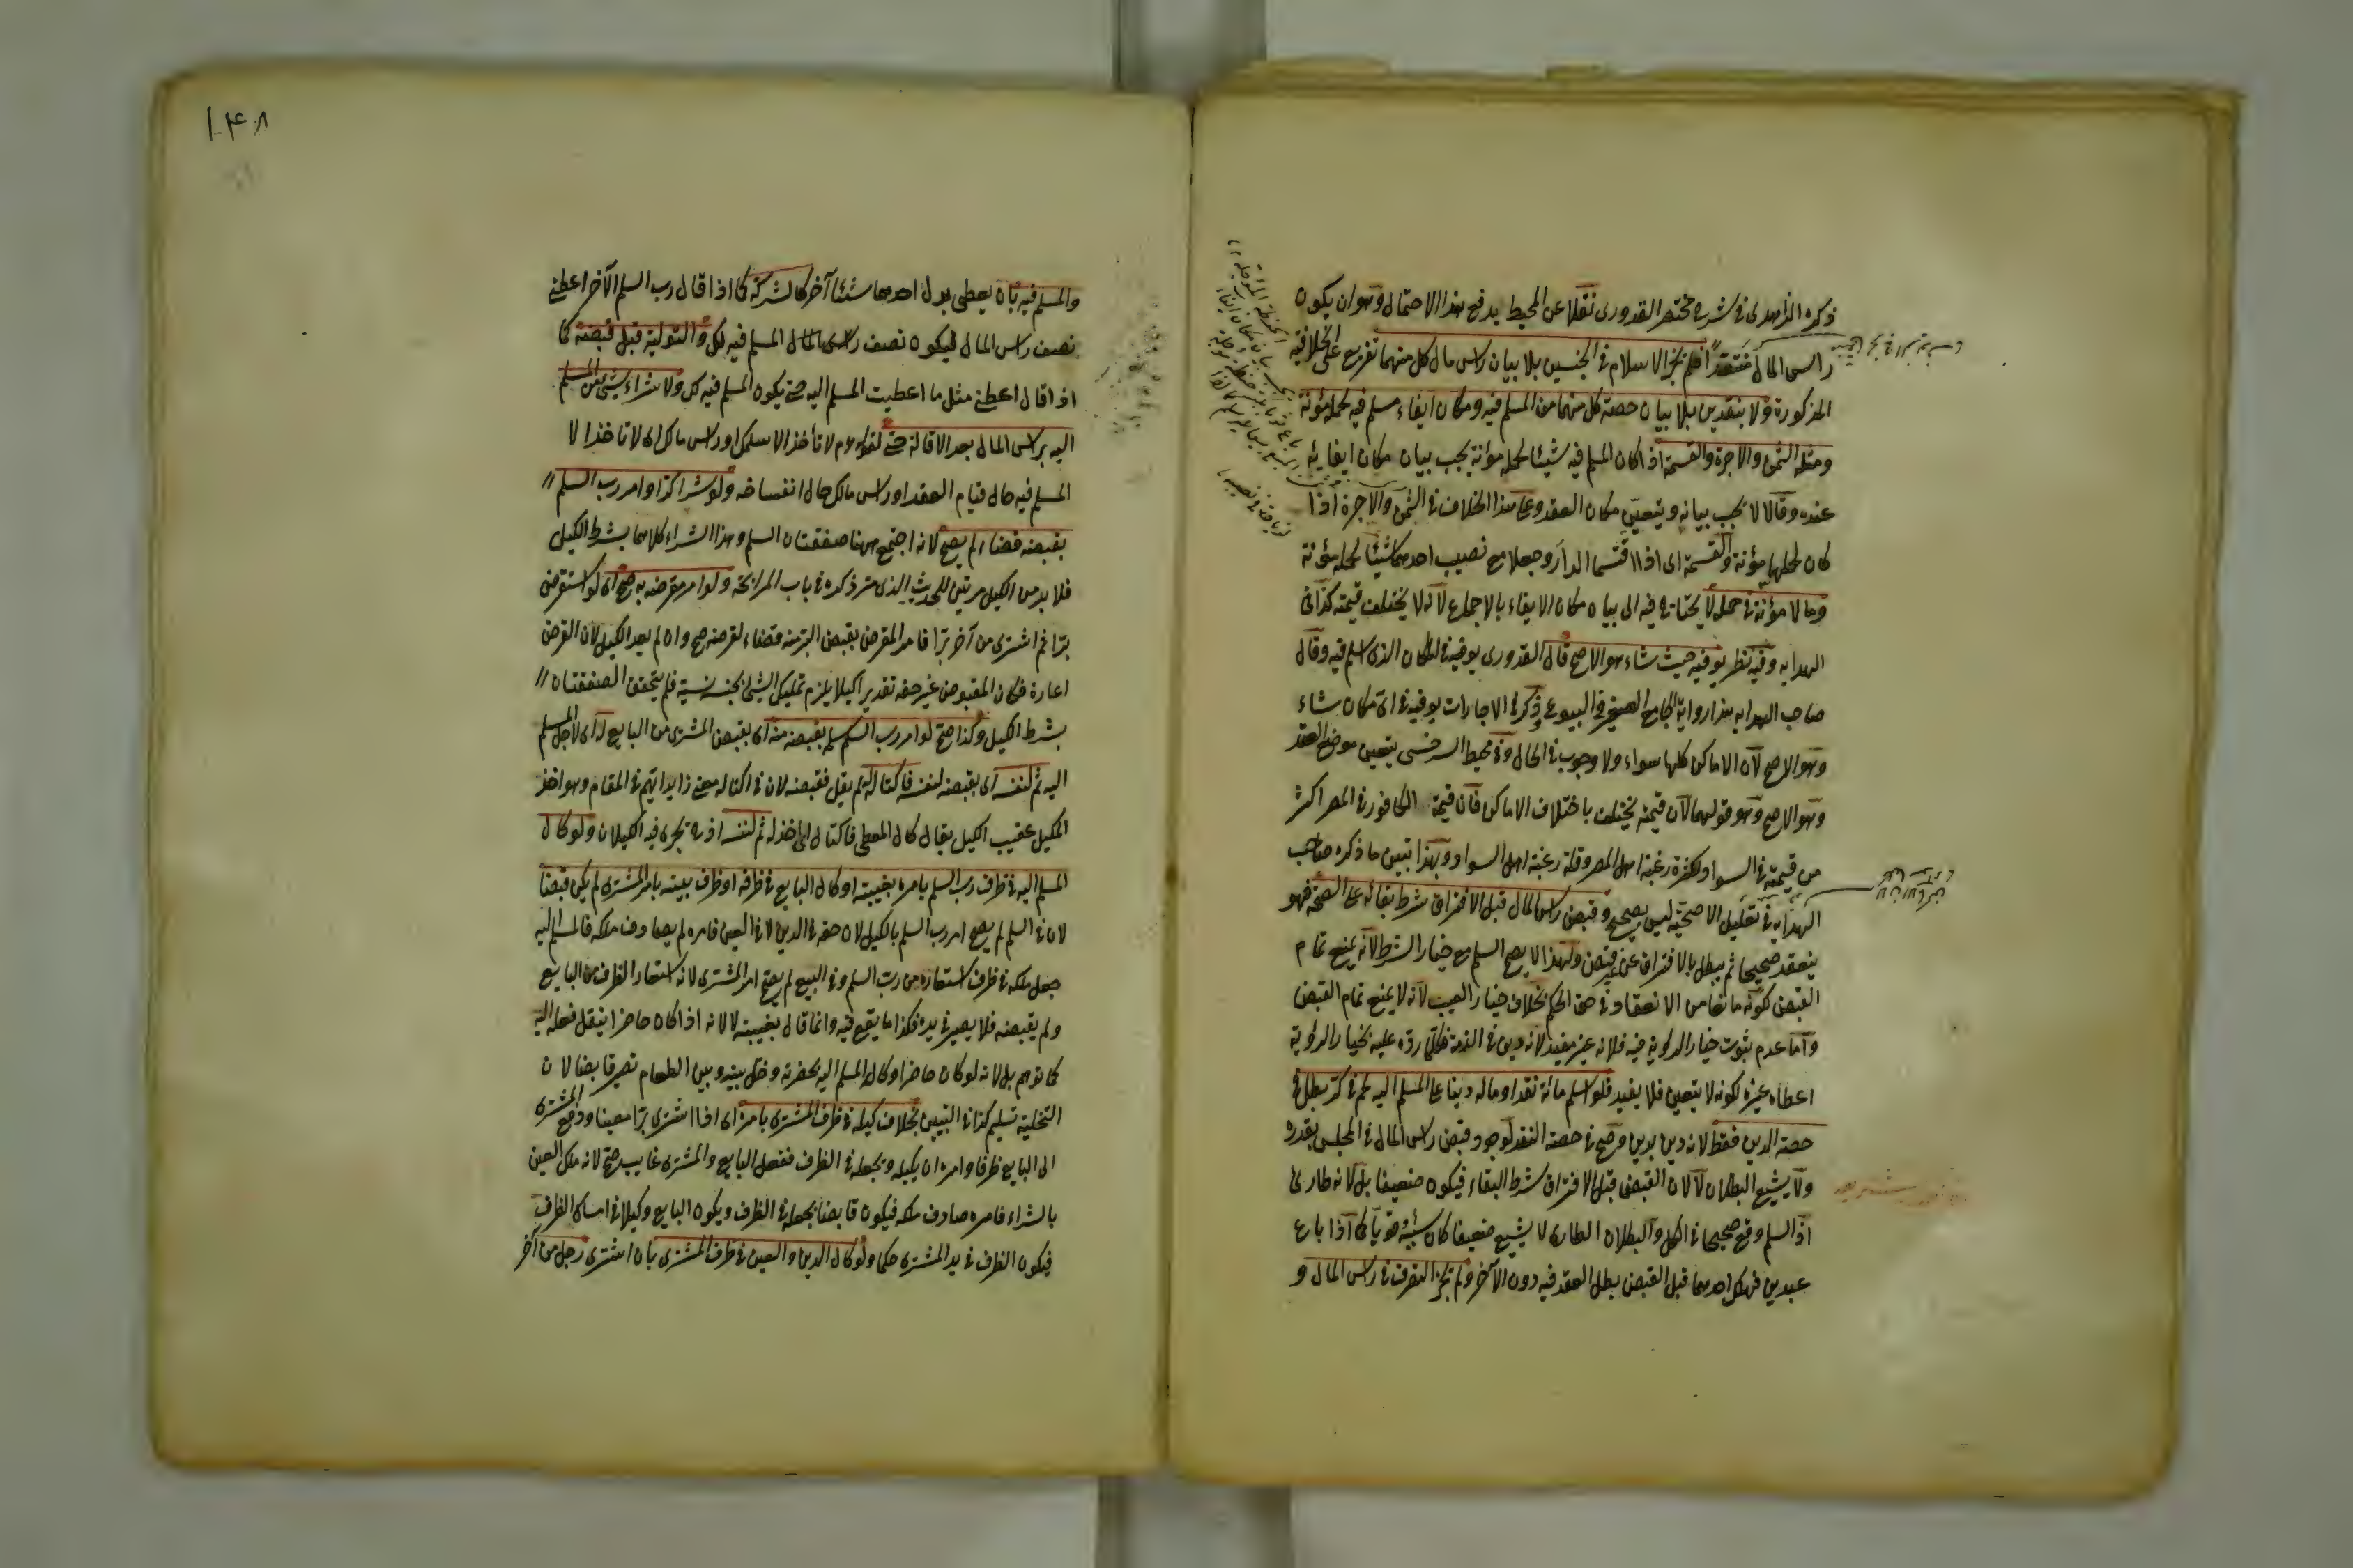 ذكره الزاهدى فى شرح مختصر القدورى نقلا عن المحيط يدفع هذا الاحتمال وهو ان يكون
راس المال منتقدا فلم يجز الاسلام فى الجنسين بلا بيان راس مال كل منهما تفريع على الخلافية
المذكورة ولا بنقدين بلا بيان حصة كل منهما من المسلم فيه ومكان ايفاء مسلم فيه لحمله مؤنة
ومثله الثمن والاجرة والقسمة اذا كان المسلم فيه شيئا لحمله مؤنة يجب بيان مكان ايفائه
عنده وقالا لا يجب بيانه ويتعين مكان العقد وعلى هذا الخلاف فى الثمن والاجرة اذا
كان لحملها مؤنة والقسمة اى اذا اقتسما الدار وجعلا مع نصيب احدهما شيئا لحمله مؤنة
وما لا مؤنة فى حمله لا يحتاج فيه الى بيان مكان الايفاء بالاجماع لانه لا يختلف قيمته كذا فى
الهدايه وفيه نظر يوفيه حيث شاء هو الاصح قال القدورى يوفيه فى المكان الذى اسلم فيه وقال
صاحب الهدايه هذا رواية الجامع الصغير فى البيوع وذكر فى الاجارات يوفيه فى اى مكان شاء
وهو الاصح لان الاماكن كلها سواء ولا وجوب فى الحال وفى محيط السرخسى يتعين موضع العقد
وهو الاصح وهو قولهما لان قيمته يختلف باختلاف الاماكن فان قيمة الكافور فى المصر اكثر
من قيمته فى السواد لكثرة رغبة اهل المصر وقلة رغبة اهل السواد وبهذا تبين ما ذكره صاحب
الهدايه فى تعليل الاصحية ليس بصحيح وقبض راس المال قبل الافتراق شرط بقائه على الصحة فهو
ينعقد صحيحا ثم يبطل بالافتراق عن غير قبض ولهذا لا يصح السلم مع خيار الشرط لانه يمنع تمام
القبض كونه مانعا من الانعقاد فى حق الحكم بخلاف خيار العيب لانه لا يمنع تمام القبض
واما عدم ثبوت خيار الرؤية فيه فلانه غير مفيد لانه دين فى الذمة فلكما رده عليه بخيار الرؤية
اعطاه غيره لكونه لا يتعين فلا يفيد فلو اسلم مائة نقدا ومائه دينا على المسلم اليه فى كر بطل فى
حصة الدين فقط لانه دين بدين وصح فى حصة النقد لوجود قبض راس المال فى المجلس بقدره
ولا يشيع البطلان لا لان القبض قبل الافتراق شرط البقاء فيكون ضعيفا بل لانه طارئ
اذ السلم وقع صحيحا فى الكل والبطلان الطارى لا يشيع ضعيفا كان سببه او قويا كما اذا باع
عبدين فهلك احدهما قبل القبض بطل العقد فيه دون الآخر ولم يجز التصرف فى راس المال و
١٤٨
والمسلم فيه بان يعطى بدل احدهما شيئا آخر كالشركة كما اذا قال رب السلم لآخر اعطنى
نصف راس المال ليكون نصف المسلم فيه لك والتولية قبل قبضه كما
اذا قال اعطنى مثل ما اعطيت المسلم اليه حتى يكون المسلم فيه لك ولا شراء شئ من المسلم
اليه براس المال بعد الاقالة حتى لقوله عم لا تأخذ الا سلمك او راس مالك اى لا تاخذ الا
المسلم فيه حال قيام العقد او راس مالك حال انفساخه ولو شرا كرا وامر رب السلم
بقبضه قضاء لم يصح لانه اجتمع ههنا صفقتان السلم وهذا الشراء كلاهما بشرط الكيل
فلا بد من الكيل مرتين للحديث الذى مر ذكره فى باب المرابحة ولو امر مقرضه به صح اى لو استقرض
برا ثم اشترى من آخر برا فامر المقرض بقبض البر منه قضاء لقرضه صح وان لم يعد الكيل لان القرض
اعارة فكان المقبوض عين حقه تقديرا كيلا يلزم تمليك الشئ بجنسه نسية فلم يتحقق الصفقتان
بشرط الكيل وكذا صح لو امر رب السلم بقبضه منه اى بقبض المشترى من البايع له اى لاجل المسلم
اليه ثم لنفسه اى بقبضه لنفسه فاكتاله لم يقل فقبضه لان فى اكتاله معنى زايدا يتم فى المقام وهو اخذ
المكيل عقيب الكيل يقال كال المعطى فاكتال اى اخذ له ثم لنفسه اذ به يجرى فيه الكيلان ولو كال
المسلم اليه فى ظرف رب السلم بامره بغيبته او كال البايع فى ظرفه او ظرف بيته بامر المشترى لم يكن قبضا
لان فى السلم لم يصح امر رب السلم بالكيل لان حقه فى الدين لا فى العين فامره لم يصادف ملكه فالمسلم اليه
جعل ملكه فى ظرف استعاره من رب السلم وفى البيع لم يصح امر المشترى لانه استعار الظرف من البايع
ولم يقبضه فلا يصير فى يده فكذا ما يقع فيه وانما قال بغيبته لا لانه اذا كان حاضرا ينتقل فعله اليه
كما توهم بل لانه لو كان حاضرا وكال المسلم اليه بحضرته وخلى بينه وبين الطعام تصير قابضا لان
التخلية تسليم كذا فى التبيين بخلاف كيله فى ظرف المشترى بامره اى اذا اشترى برا معينا ودفع المشترى
الى البايع ظرفا وامره ان يكيله ويجعله فى الظرف ففعل البايع والمشترى غايب صح لانه ملك العين
بالشراء فامره صادف ملكه فيكون قابضا بجعله فى الظرف ويكون البايع وكيلا فى امساك الظرف
فيكون الظرف فى يد المشترى حكما ولو كال الدين والعين فى ظرف المشترى بان اشترى رجل من آخر